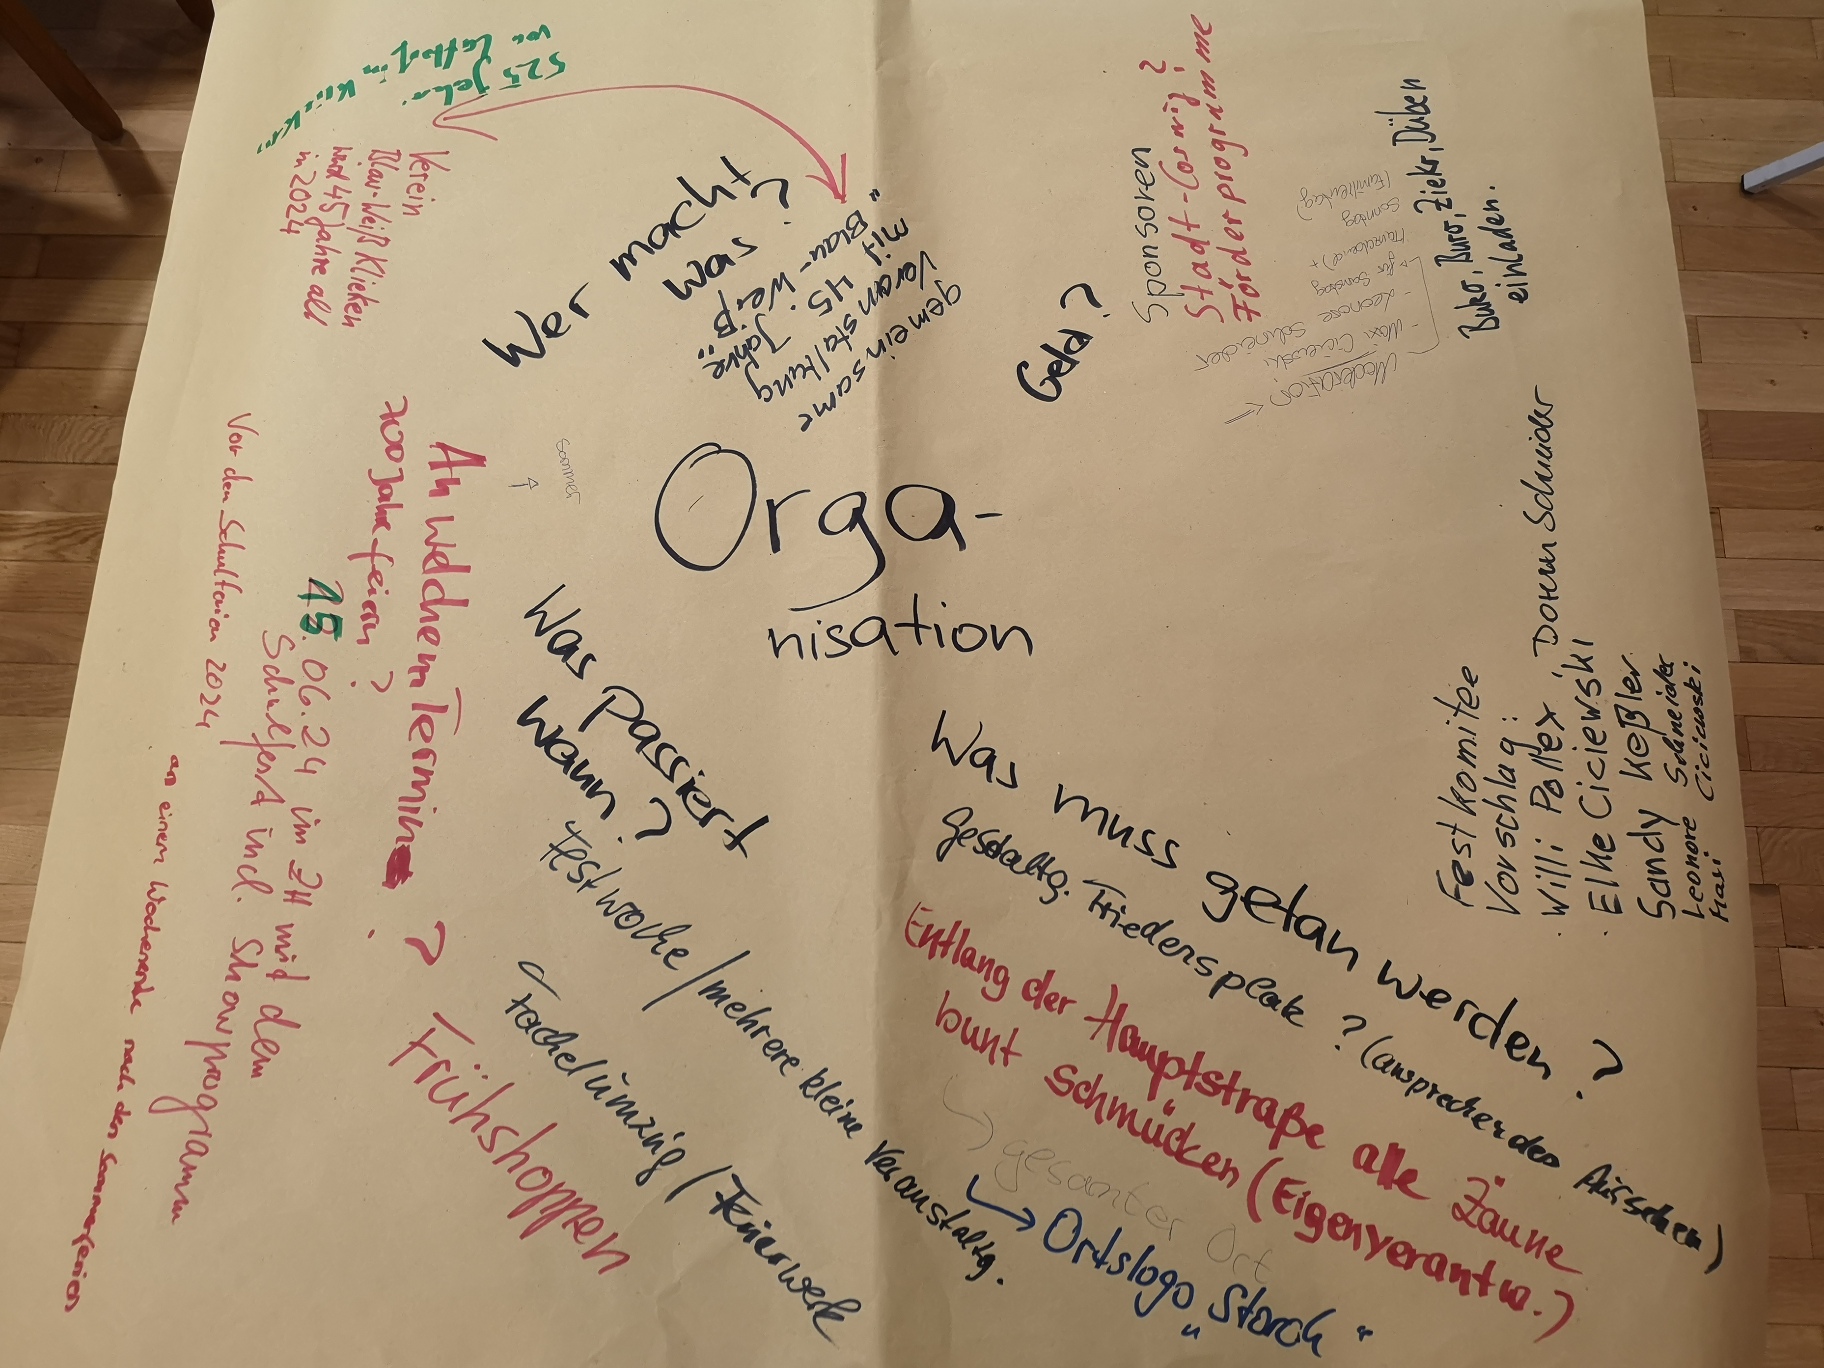 Orga-
nisation
Wer macht
was ?
gemeinsame
Veranstaltung
mit 45 Jahre
"Blau-Weiß"
525 Jahre
von
in
Verein
Blau-Weiß Klieken
wird 45 Jahre alt
in 2024
Geld?
Sponsoren
Stadt-Coswig?
Förderprogramme
Moderation
- Maxi Ciciewski
- Leonore Schneider
für Samstag
+
Sonntag
(Familientag)
Buko, Buro, Zieko, Düben
einladen.
Festkomitee
Vorschlag:
Willi Pollex, Doreen Schneider
Elke Ciciewski
Sandy Keßler
Leonore Schneider
Maxi Ciciewski
Sommer
An welchem Termin ?
700 Jahre feiern?
15.06.24 im ZH mit dem
Schulfest incl. Showprogramm
Vor den Schulferien 2024
an einem Wochenende nach den Sommerferien
Was passiert
wann?
Festwoche / mehrere kleine Veranstaltg.
Fackelumzug / Feuerwerk
Frühshoppen
Was muss getan werden?
Gestaltg. Friedensplatz ? (ansprechendes Aussehen)
Entlang der Hauptstraße alle Zäune
bunt schmücken (Eigenverantw.)
gesamter Ort
Ortslogo „Storch“